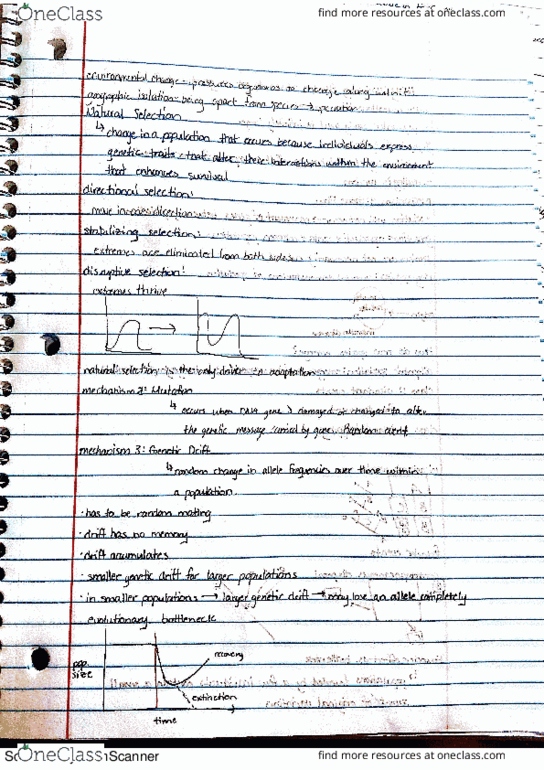 OneClass
find more resources at oneclass.com
environmental change - pressures organisms to change along with it
geographic isolation - being apart from species →
Natural Selection
↳ change in a population that occurs because individuals express
genetic traits that alter their interactions within the environment
that enhances survival
directional selection:
move in one direction
stabilizing selection:
extremes are eliminated from both sides
disruptive selection:
extremes thrive
natural selection is the only driver to adaptation
mechanism 2: Mutation
↳ occurs when DNA gene is damaged or changed to alter
the genetic message carried by gene. Random event
mechanism 3: Genetic Drift
↳ random change in allele frequencies over time within
a population.
· has to be random mating
· drift has no memory
· drift accumulates
· smaller genetic drift for larger populations
· in smaller populations → larger genetic drift → may lose an allele completely
evolutionary bottleneck
recovery
pop.
size
extinction
time
OneClass
Scanner
find more resources at oneclass.com